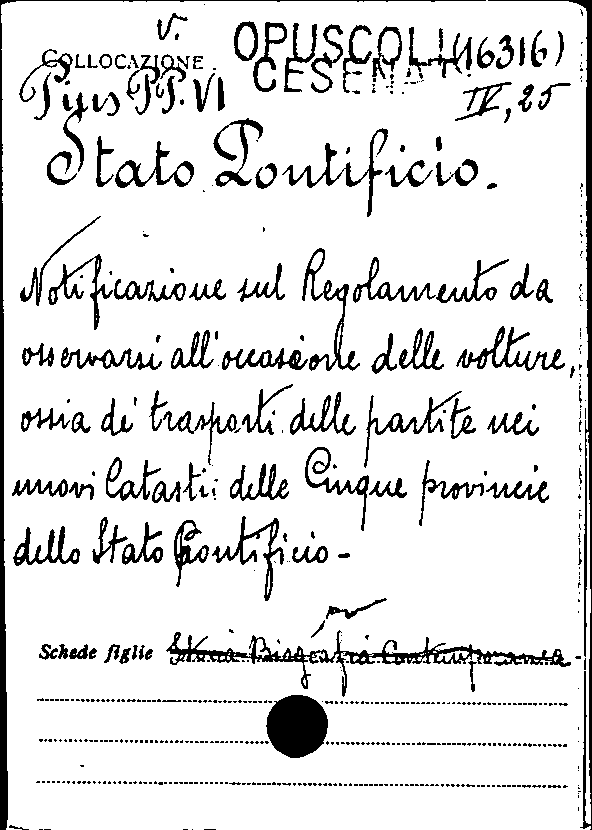 v.
COLLOCAZIONE OPUSCOLI (16316)
CESENATI
Pius PP. VI IV, 25
Stato Pontificio.
Notificazione sul Regolamento da
osservarsi all'occasione delle volture,
ossia de' trasporti delle partite nei
nuovi Catasti: delle Cinque provincie
dello Stato Pontificio -
Schede figlie Storia Biografia Contemporanea -